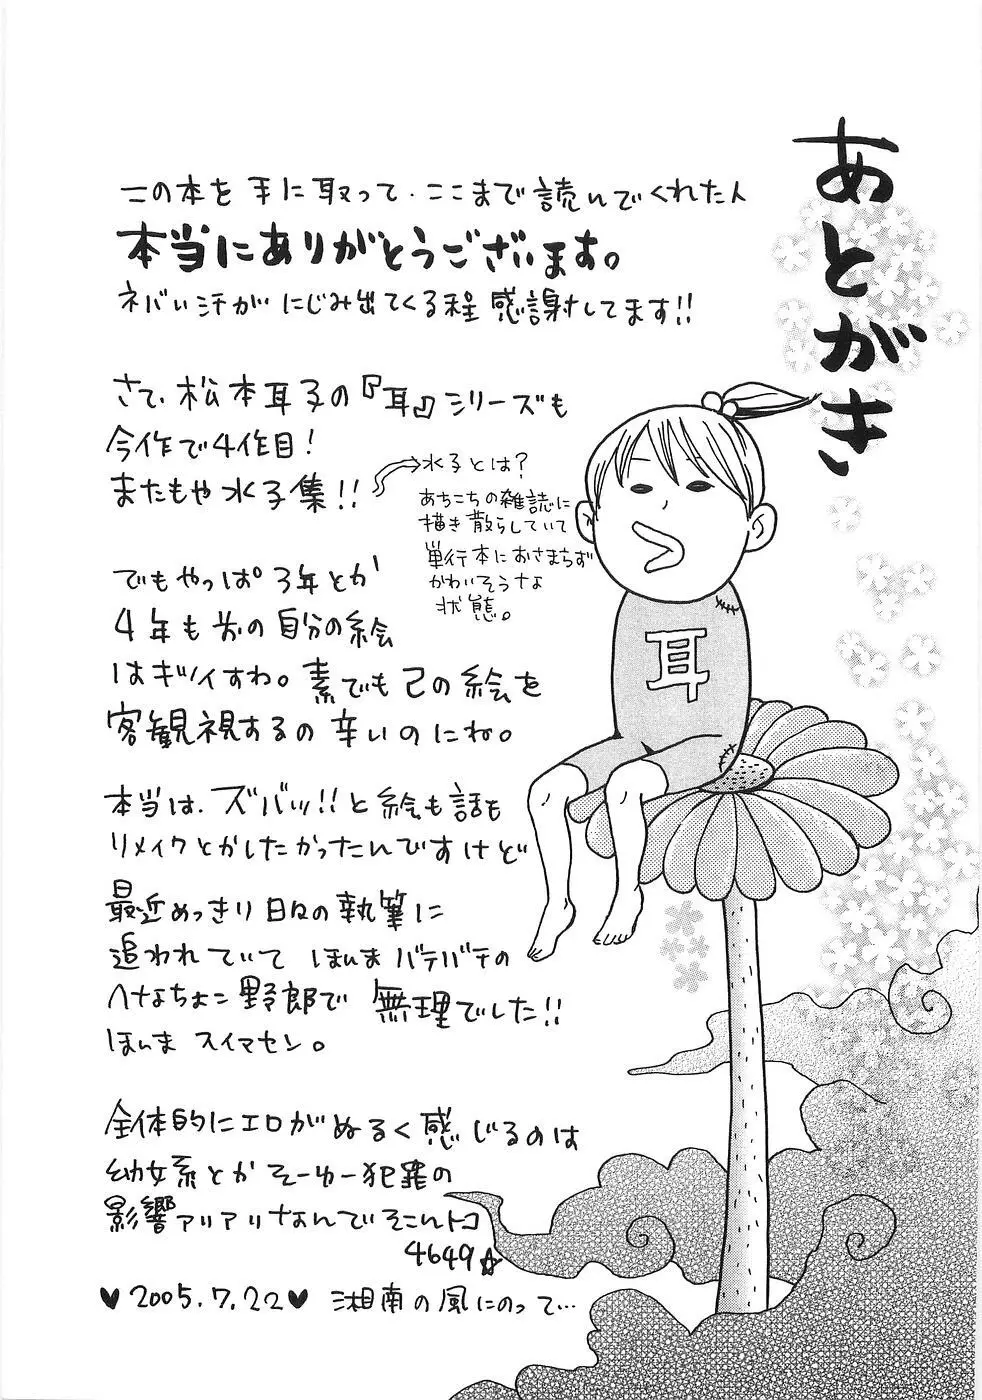 あとがき
この本を手に取って、ここまで読んでくれた人
本当にありがとうございます。
ネバい汗がにじみ出てくる程感謝してます!!
さて、松本耳子の『耳』シリーズも
今作で4作目!
またもや水子集!!
→水子とは?
あちこちの雑誌に
描き散らしていて
単行本におさまらず
かわいそうな
状態。
でもやっぱ3年とか
4年も前の自分の絵
はキツイすわ。素でも己の絵を
客観視するの辛いのにね。
本当は、ズバッ!!と絵も話も
リメイクとかしたかったんですけど
最近めっきり日々の執筆に
追われていてほんまバテバテの
へなちょこ野郎で無理でした!!
ほんまスイマセン。
全体的にエロがぬるく感じるのは
幼女系とかそーゆー犯罪の
影響アリアリなんでそこんトコ
4649☆
♥2005.7.22♥ 湘南の風にのって…
耳